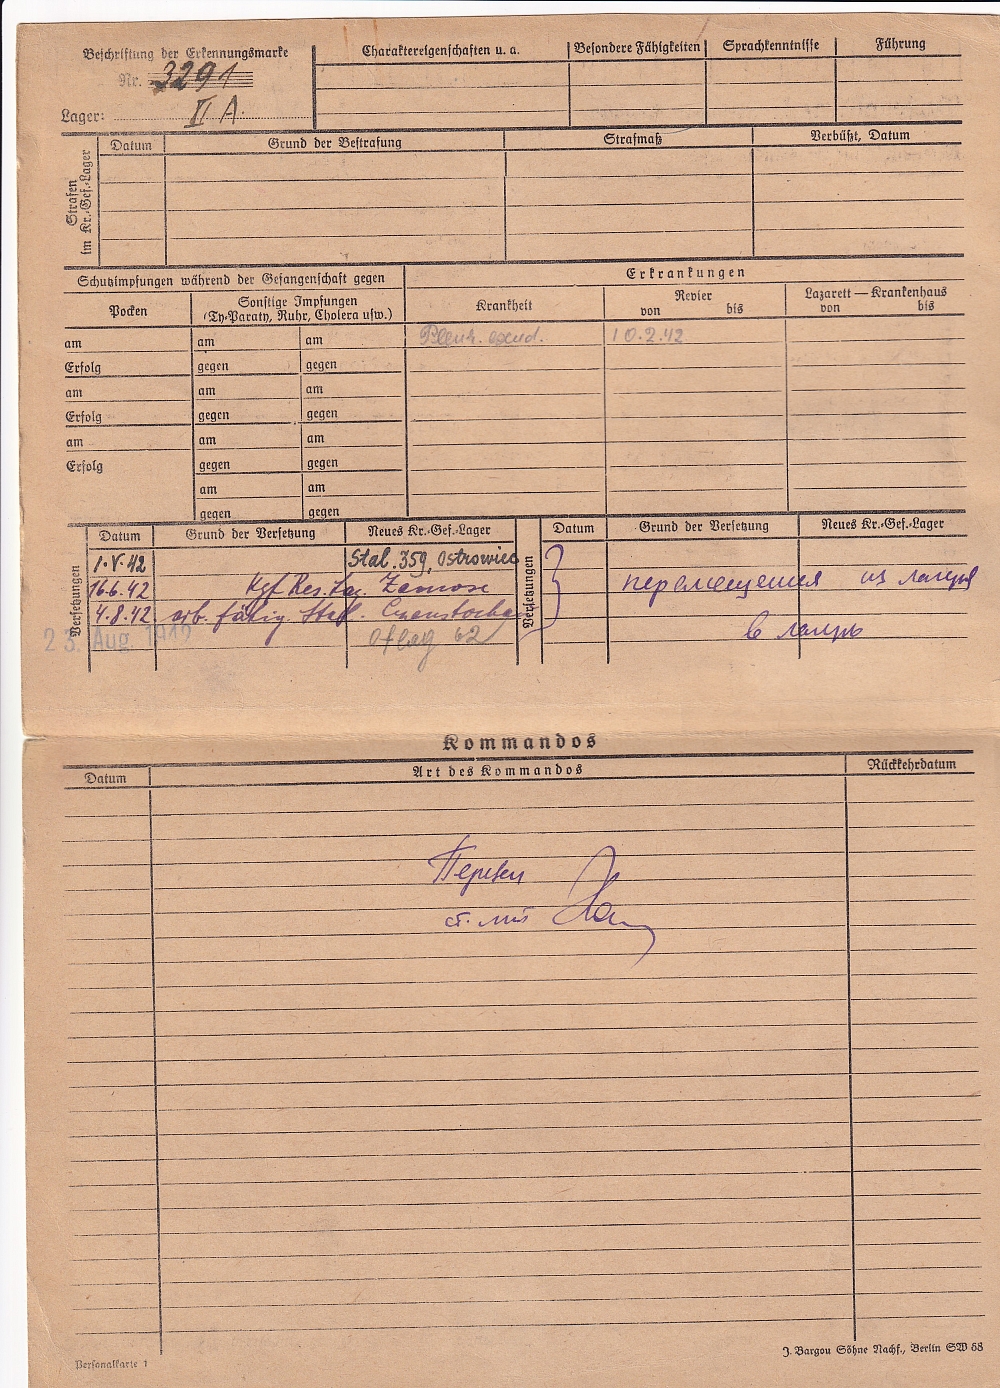 Beschriftung der Erkennungsmarke
Nr. 3291
Lager: II A.
Charaktereigenschaften u. a.
Besondere Fähigkeiten
Sprachkenntnisse
Führung
Strafen im Kr.-Gef.-Lager
Datum
Grund der Bestrafung
Strafmaß
Verbüßt, Datum
Schutzimpfungen während der Gefangenschaft gegen
Erkrankungen
Pocken
Sonstige Impfungen
(Ty-Paraty, Ruhr, Cholera usw.)
Krankheit
Revier
von bis
Lazarett — Krankenhaus
von bis
am am am
10.2.42
Erfolg gegen gegen
am am am
Erfolg gegen gegen
am am am
Erfolg gegen gegen
am am
gegen gegen
Versetzungen
Datum
Grund der Versetzung
Neues Kr.-Gef.-Lager
Versetzungen
Datum
Grund der Versetzung
Neues Kr.-Gef.-Lager
1.V.42 Stal. 359, Ostrowiec
16.6.42 Kgf Res. Laz. Zamosc
4.8.42 arb. fähig. Stal. Czenstochau
23. Aug. 1942 Oflag 62
перемещения из лагеря
в лагерь
Kommandos
Datum
Art des Kommandos
Rückkehrdatum
Перевел
ст. л-т
Personalkarte 1
J. Bargou Söhne Nachf., Berlin SW 68